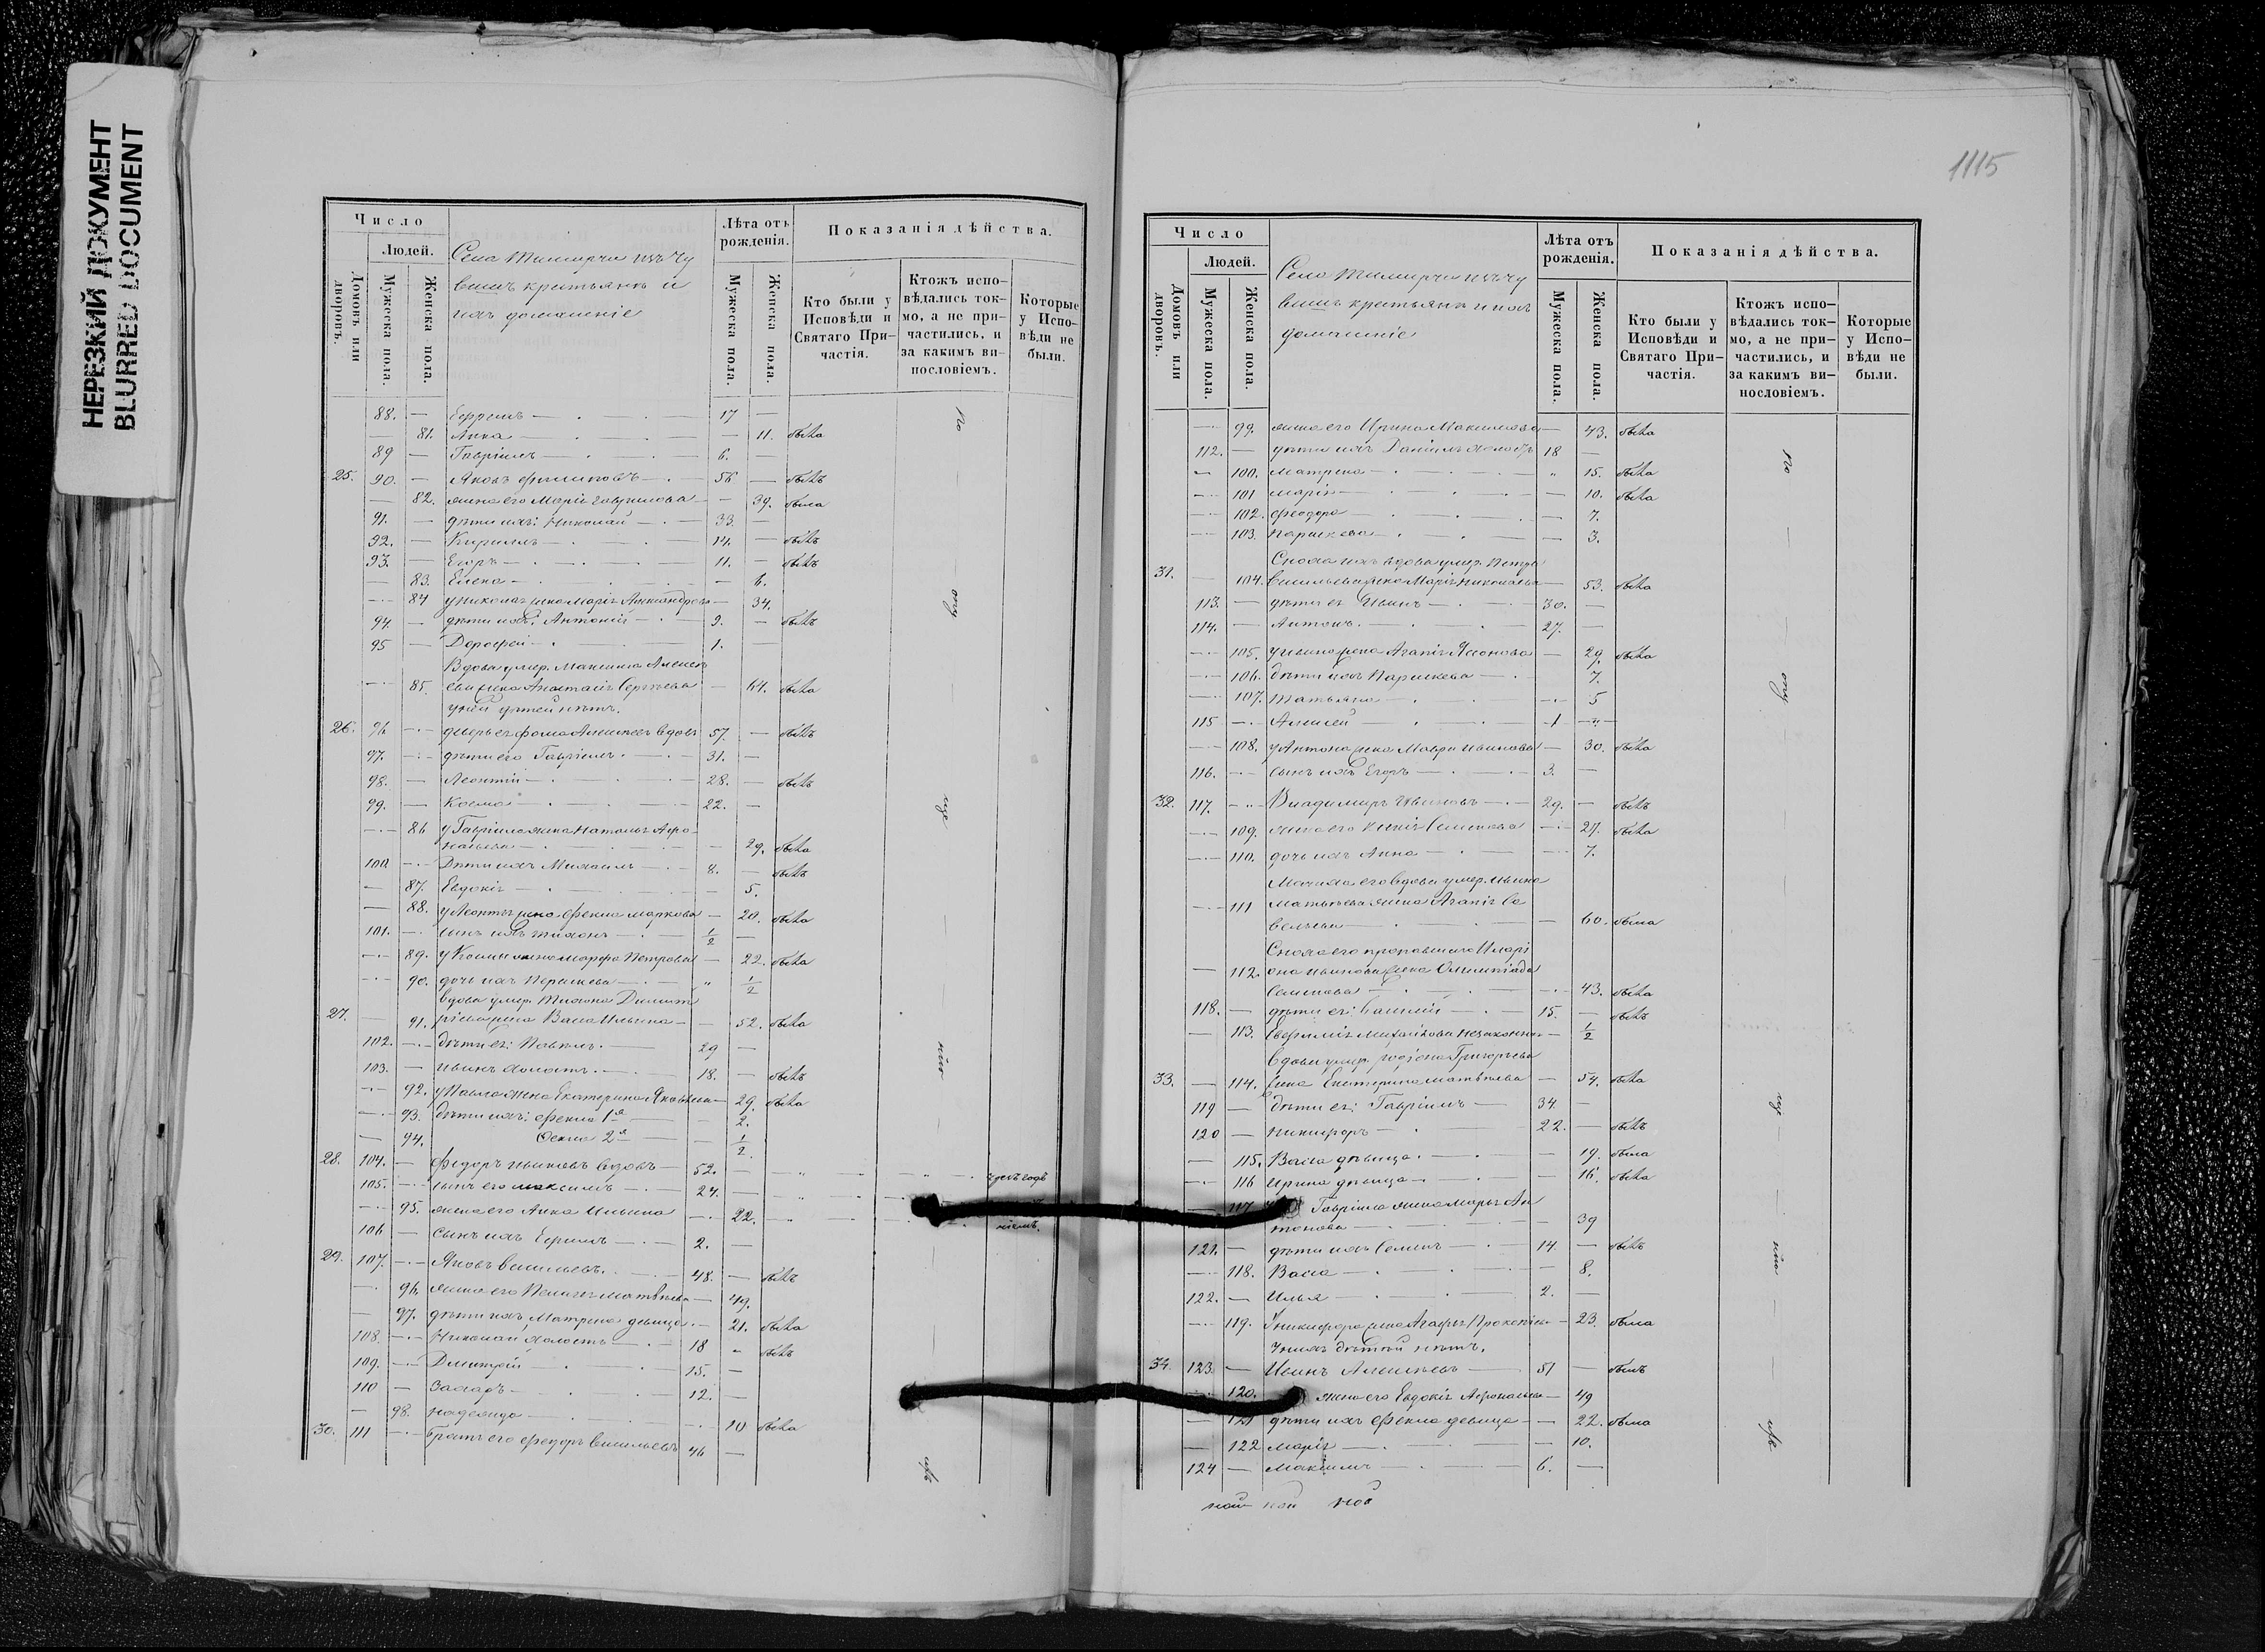 НЕРЕЗКИЙ ДОКУМЕНТ
BLURRED DOCUMENT
Число
Людей.
Домовъ или дворовъ.
Мужеска пола.
Женска пола.
Села Тимирчи изъ Чу
вашъ крестьяне и
ихъ домашніе
Лѣта отъ рожденія.
Мужеска пола.
Женска пола.
Показанія дѣйства.
Кто были у Исповѣди и Святаго Причастія.
Ктожъ исповѣдались токмо, а не причастились, и за какимъ винословіемъ.
Которые у Исповѣди не были.
88. — Ефремъ — 17 —
— 81. Анна — — 11. была
89 — Гавріилъ — 6. —
25. 90. — Яковъ Филиповъ — 56 — былъ
— 82. жена его Марія Гаврилова — 39. была
91. — дѣти ихъ: Николай — 33. —
92. — Кириллъ — 14. — былъ
93. — Егоръ — 11. — былъ
— 83. Елена — — 6.
— 84 у Николая жена Марія Александрова — 34.
94. — дѣти ихъ: Антоній — 9. — былъ
95 — Дорофей — 1. —
Вдова умер. Максима Алексѣ
— 85. ева жена Анастасія Сергѣева — 64. была
у ней дѣтей нѣтъ.
26. 96 — деверь ея Фома Алексѣевъ вдовъ 57. — былъ
97. — дѣти его Гавріилъ — 31. —
98. — Леонтій — 28. — былъ
99. — Косма — 22. —
— 86 у Гавріила жена Наталья Афо-
насьева — — 29. была
100. — Дѣти ихъ Михаилъ — 8. — былъ
— 87. Евдокія — — 5.
— 88. у Леонтья жена Фекла Маркова — 20. была
101. — сынъ ихъ Тихонъ — 1/2 —
— 89. у Космы жена Марфа Петрова — 22. была
— 90. дочь ихъ Параскева — " 1/2
вдова умер. Тихона Димит
27. — 91. ріева жена Васса Ильина — — 52. была
102. — дѣти ея: Павелъ. — 29 —
103. — Иванъ холостъ. — 18. — былъ
— 92. у Павла жена Екатерина Яковлева — 29. была
— 93. дѣти ихъ: Фекла 1я — — 2.
— 94. Фекла 2я — — 1/2
28. 104. — Федоръ Ивановъ вдовъ — 52. —
105. — сынъ его Максимъ — 24. —
— 95. жена его Анна Ильина — 22.
106 — сынъ ихъ — 2. —
29. 107. — Яковъ Васильевъ. — 48. — былъ
— 96. жена его Пелагея Матвѣева — 49.
— 97. дѣти ихъ Матрена девица — 21. была
108. — Николай холостъ — 18 — былъ
109. — Дмитрій — 15. —
110 — Захаръ — 12. —
— 98. Надежда — — 10 была
30. 111 — Братъ его Федоръ Васильевъ 46 —
1115
Число
Людей.
Домовъ или дворовъ.
Мужеска пола.
Женска пола.
Село Тимирчи изъ Чу
вашъ крестьяне и ихъ
домашніе
Лѣта отъ рожденія.
Мужеска пола.
Женска пола.
Показанія дѣйства.
Кто были у Исповѣди и Святаго Причастія.
Ктожъ исповѣдались токмо, а не причастились, и за какимъ винословіемъ.
Которые у Исповѣди не были.
— 99. жена его Ирина Максимова — 43. была
112. — дѣти ихъ Даніилъ холостъ 18 —
— 100. Матрена — " 15. была
— 101 Марія — — 10. была
— 102. Феодора — — 7.
— 103. Параскева — — 3.
Сноха ихъ вдова умер. Петра
31. — 104. Васильева жена Марія Николаева — 53. была
113. — дѣти ея Иванъ — 30. —
114. — Антонъ. — 27. —
— 105. у Ивана жена Агапія — 29. была
— 106. дѣти ихъ Параскева — 7.
— 107. Татьяна — — 5
115 — Алексей — 1 —
— 108. у Антона жена Мавра Иванова — 30. была
116. — сынъ ихъ Егоръ — 3. —
32. 117. — Владимиръ Ивановъ — 29. — былъ
— 109. жена его Ксенія Семенова — 27. была
— 110. дочь ихъ Анна — — 7.
Мачиха его вдова умер. Ивана
— 111 Матвѣева жена Агапія Са
вельева — — 60. была
Сноха его пропавшаго Иларі
— 112. она Иванова жена Олимпіада
Семенова — — 43. была
118. — дѣти ея: Василій — 15. — былъ
— 113. незаконна — 1/2
вдова умер. Родіона Григорьева
33. — 114. жена Екатерина Матвѣева — 54. была
119 — дѣти ея: Гавріилъ — 34. —
120 — Никифоръ — 22. — былъ
— 115. Васса дѣвица — — 19. была
— 116 Ирина дѣвица — — 16. была
— 117 Гавріила жена Марья Ан
тонова — — 39
121. — дѣти ихъ Семенъ — 14. — былъ
— 118. Васса — — 8.
122. — Илья — 2. —
— 119. У Никифора жена Агафья Прокопіева — 23. была
У нихъ дѣтей нѣтъ.
34. 123. — Иванъ Алексѣевъ — 51 — былъ
— 120. жена его Евдокія Афонасьева — 49
— 121 дѣти ихъ Фекла девица — 22. была
— 122 Марія — — 10.
124 — Максимъ — 6. —